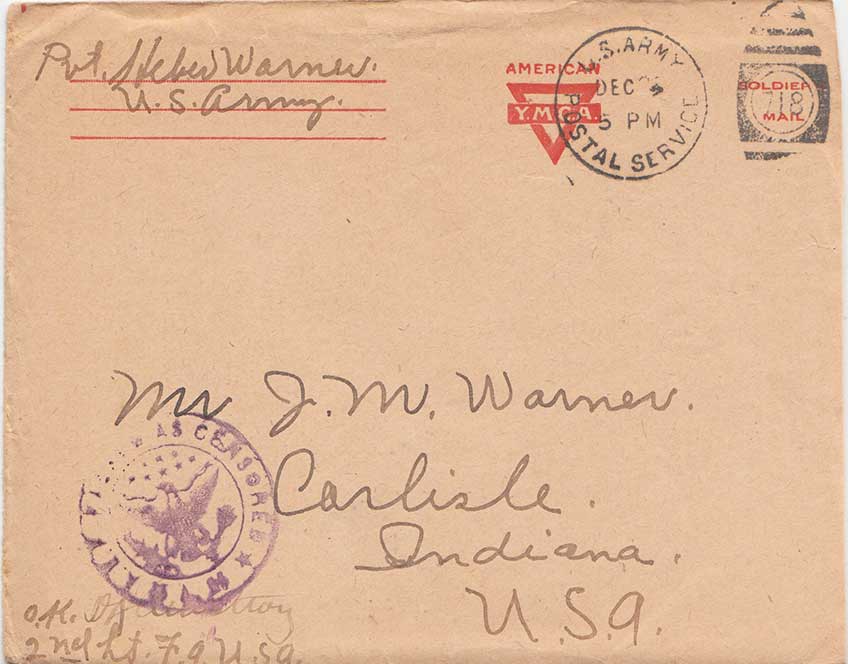 Pvt. Heber Warner.
U.S. Army.
AMERICAN
Y.M.C.A.
U.S. ARMY
DEC
5 PM
POSTAL SERVICE
SOLDIER
718
MAIL
Mr J. M. Warner.
Carlisle.
Indiana.
U.S.A.
AS CENSORED
O.K.
2nd Lt. F.A. U.S.A.